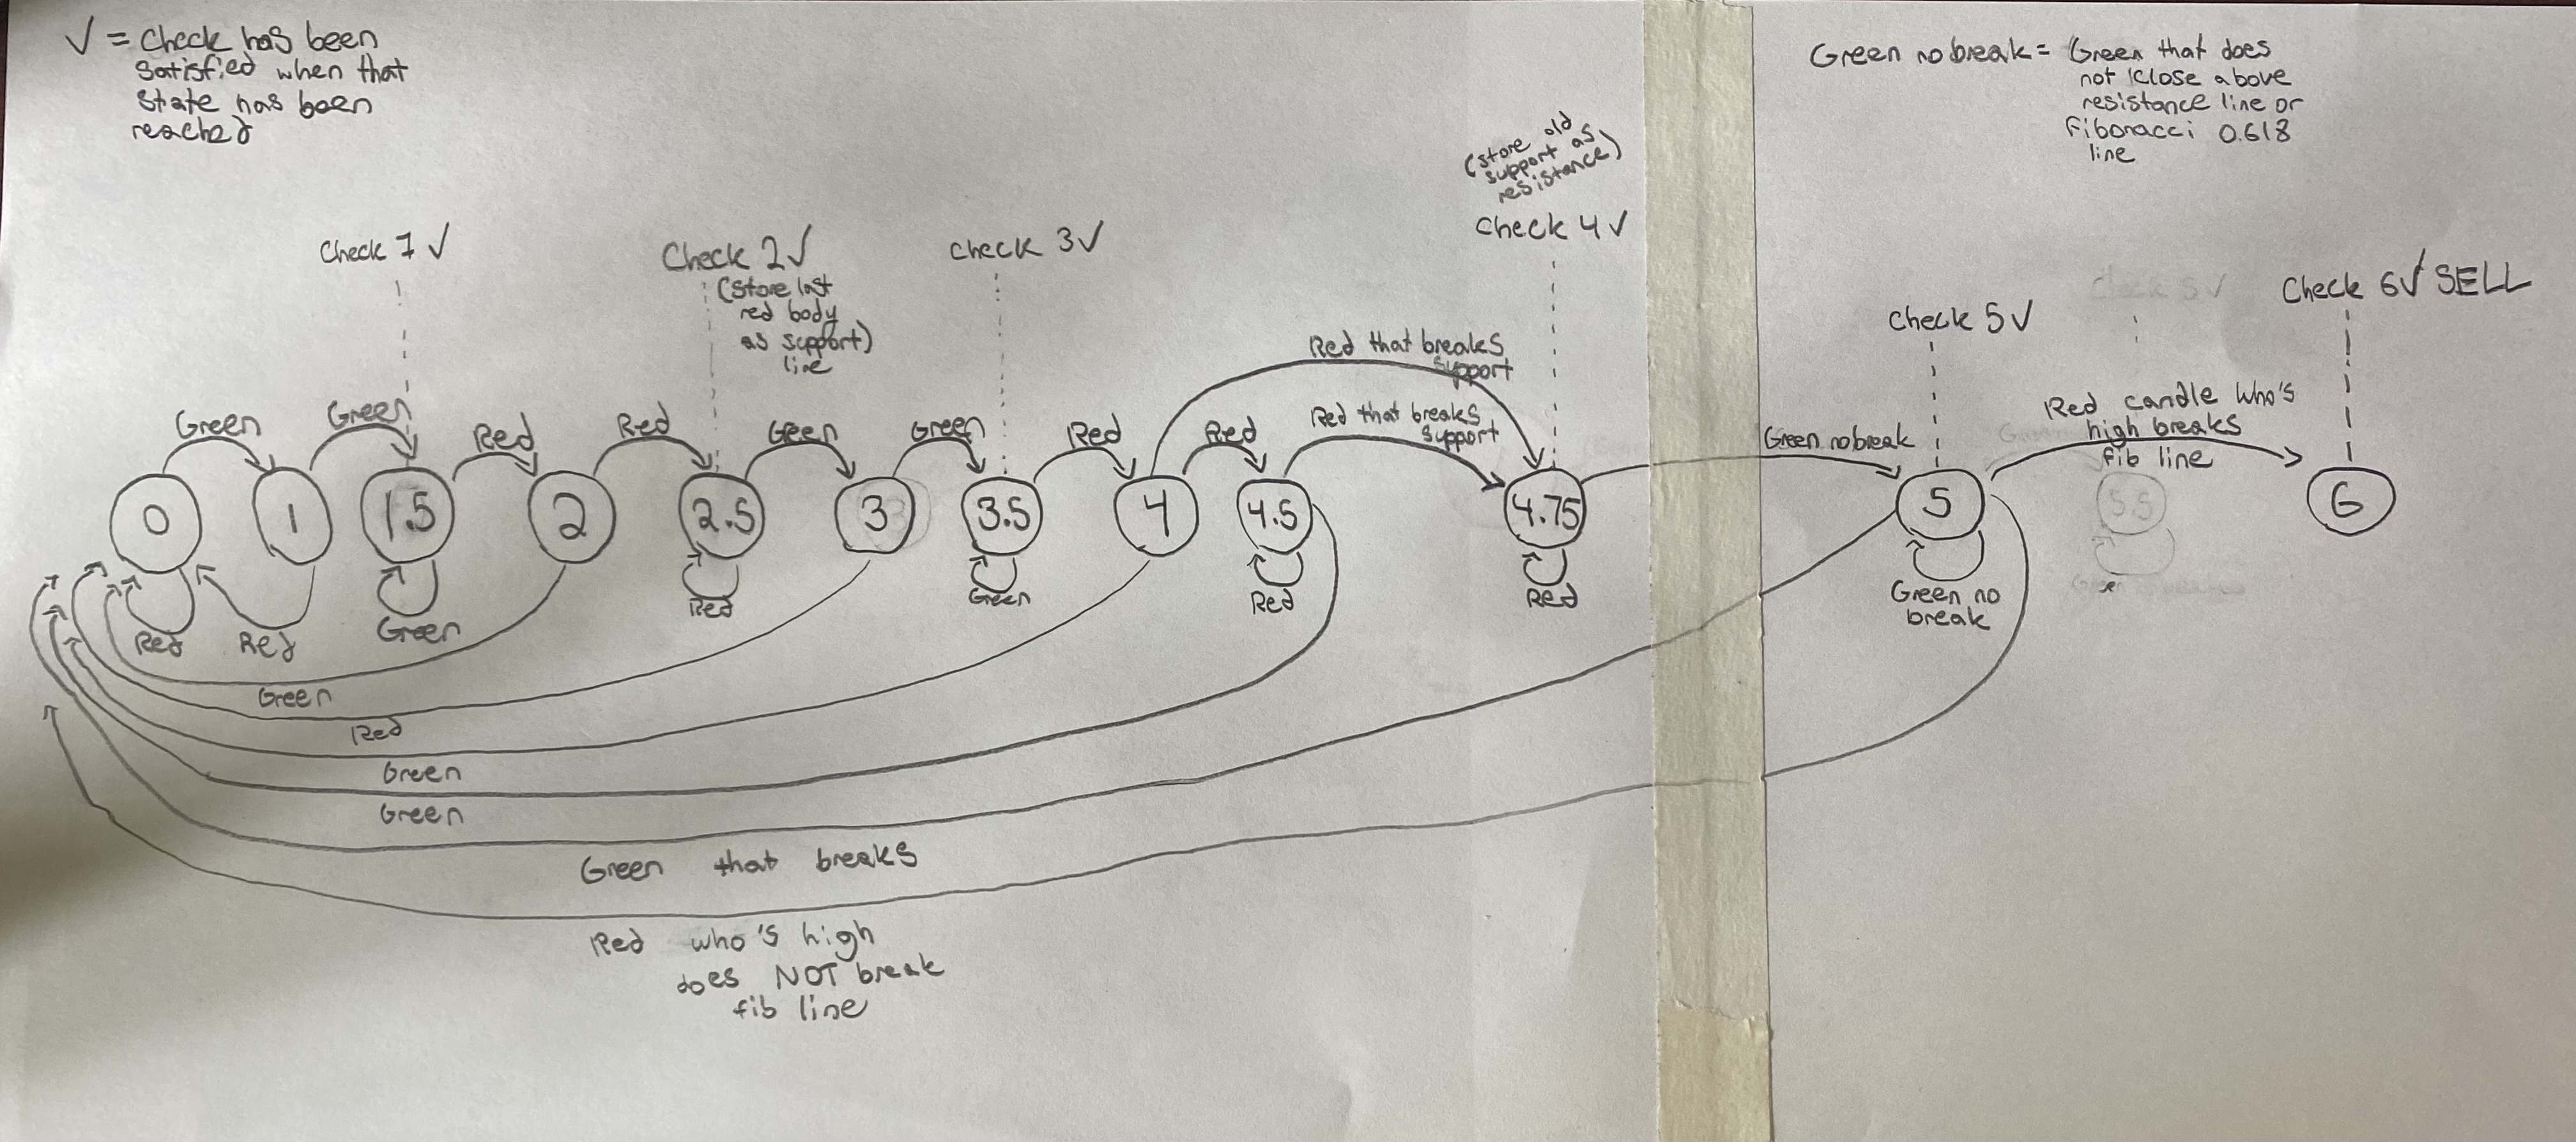 √ = Check has been
satisfied when that
state has been
reached
Green no break = Green that does
not close above
resistance line or
Fibonacci 0.618
line
(store old
support as
resistance)
Check 4 √
Check 1 √
Check 2 √
(store last
red body
as support)
line
Check 3 √
Check 5 √
Check 5 √
Check 6 √ SELL
Red that breaks
support
Red that breaks
support
Red candle who's
high breaks
fib line
Green
Green
Red
Red
Green
Green
Red
Red
Green no break
0
1
1.5
2
2.5
3
3.5
4
4.5
4.75
5
5.5
6
Red
Red
Green
Red
Green
Red
Red
Green no
break
Green
Red
Green
Green
Green that breaks
Red who's high
does NOT break
fib line